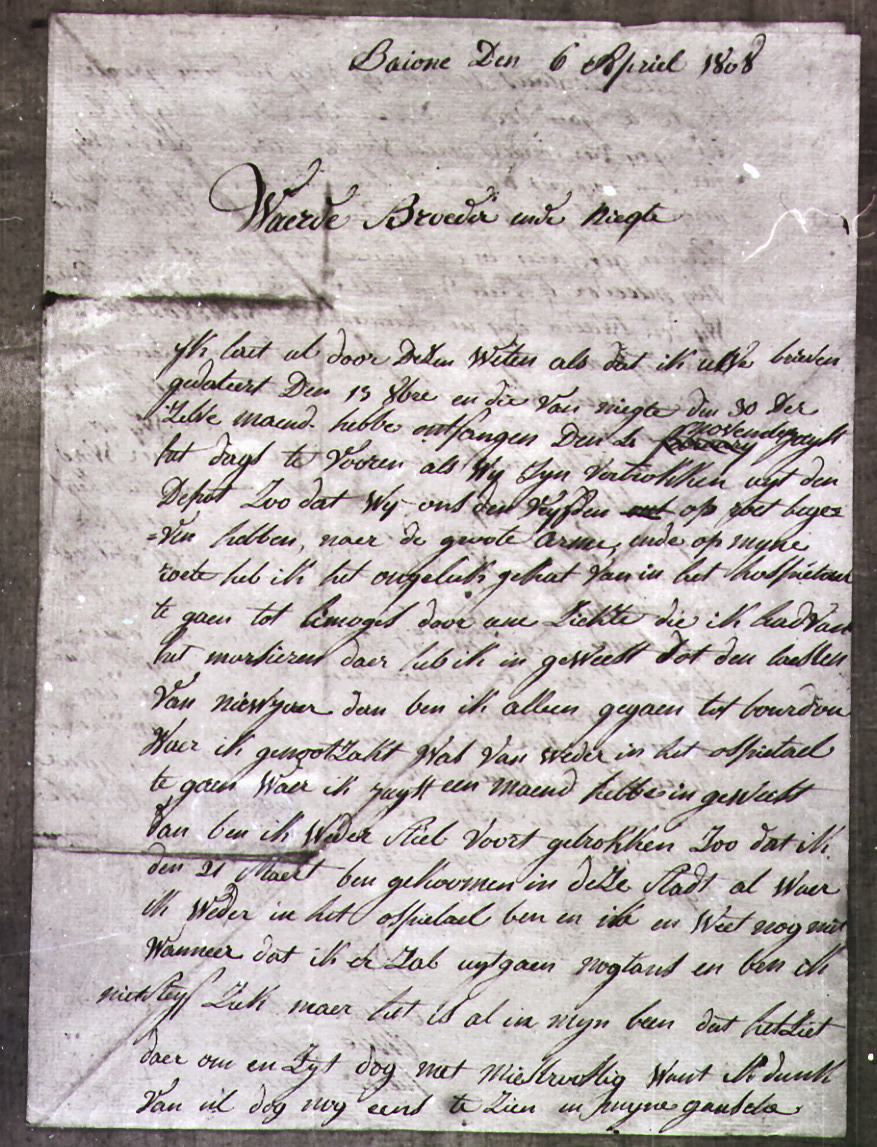 Baione Den 6 Apriel 1808
Waerde Broeder ende Niegte
Ik laet ul door Dezen Weten als dat ik ulWe brieven
gedateert Den 13 8bre en die Van niegte den 30 Der
Zelve maend hebbe ontfangen Den 2 november juyst
het dags te Vooren als Wij Syn Vertrokken uyt den
Depot Zoo dat Wij ons den Vyfden op roet bege=
=Ven hebben, naer de groote arme, ende op myne
roete heb ik het ongeluk gehat Van in het hospietael
te gaen tot Limoges door une Ziekte die ik had Van
het marsieren daer heb ik in geweest tot den laesten
Van niewjaer dan ben ik alleen gegaen tot bourdou
Waer ik genootzakt Was Van weder in het ospietael
te gaen Waer ik juyst een maend hebbe in geweest
dan ben ik Weder Stiel Voort getrokken Zoo dat ik
den 21 Maert ben gekoomen in deze Stadt al Waer
ik Weder in het ospietael ben en ik en Weet nog niet
Wanneer dat ik er Zal uytgaen nogtans en ben ik
niet Ziek maer het is al in myn been dat het Ziet
daer om en Zyt dog niet miestroostig Want ik dunk
Van ul dog nog eens te Zien in myne